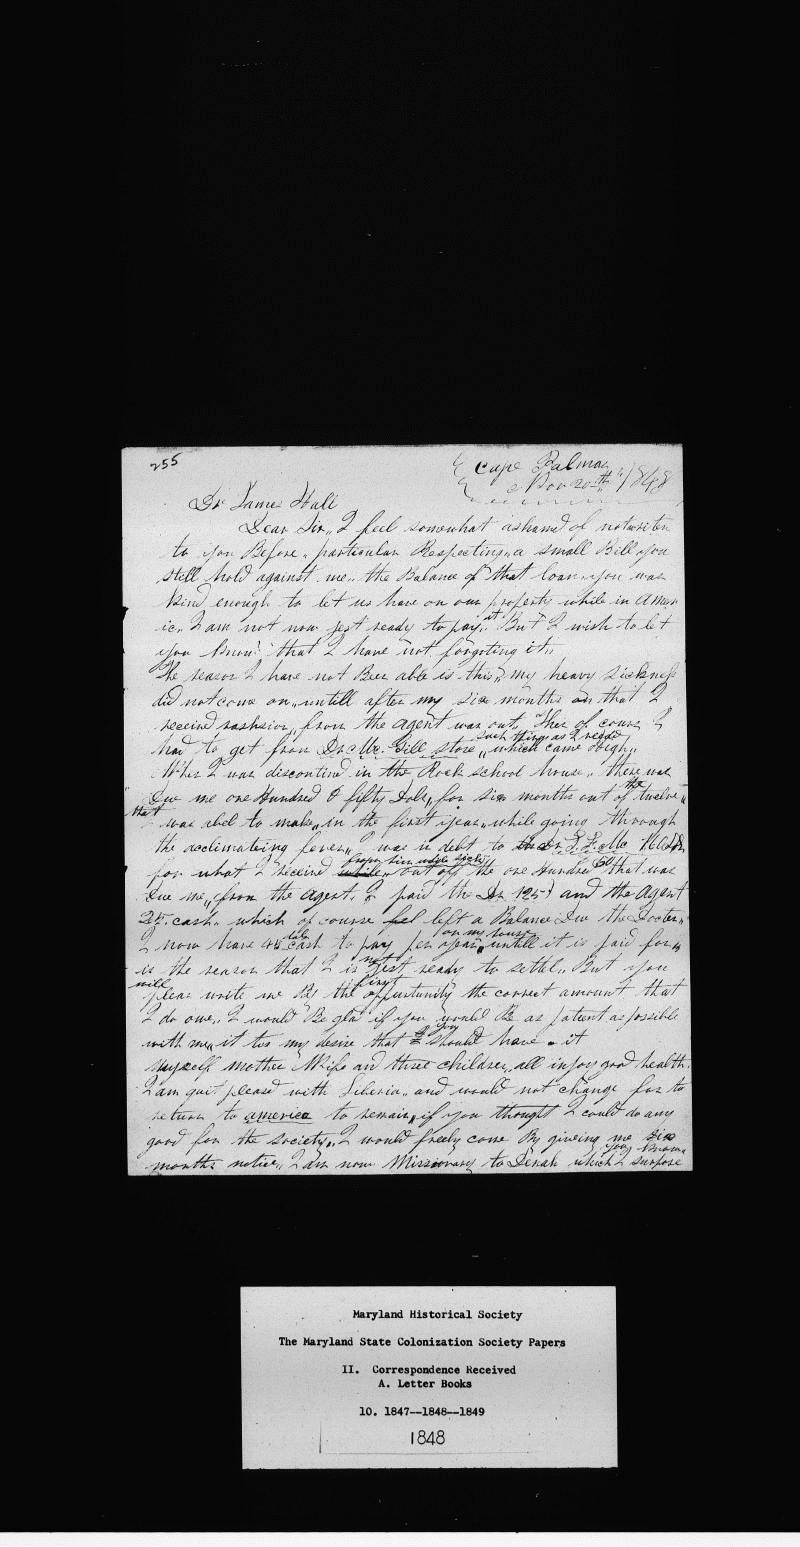 255
Cape Palmas
Nov 20th 1848
Dr James Hall
Dear Sir,, I feel somewhat ashamed of not writen
to you Before,, particular Respecting,, a small Bill you
still hold against me,, the Balance of that loan,, you was
kind enough to let us have on our property while in Amer
ic,, I am not now jest ready to pay,, it But I wish to let
you know that I have not forgoting it,,
The reason I have not Been able is this,, my heavy sickness
did not come on,, untill after my six months on that I
received rashsion,, from the agent was out, then of course I
had to get from Dr Mc. Gill store,, such thing as I need,, which came high,,
When I was discontind in the Rock school house,, there was
Due me one Hundred & fifty Dols,, for six months out of the twelve,,
that I was abel to make,, in the first year,, while going through
the acclimateing fever,, I was in debt to Dr S. F. Mc
for what I received from him while sick,, while,, out off the one Hundred 50 that was
Due me,, from the agent,, I paid the Dr 125 and the Agent
25 cash,, which of course left a Balance Due the Docter,,
I now have 48 dols cash to pay per year,, on my house untill it is paid for,,
is the reason that I is not jest ready to settel,, But you
will pleas write me By the first opportunity the correct amount that
I do owe,, I would Be glad if you would Be as patient as possible
with me,, it tis my desire that you should have it
myself mother Wife and three children,, all injoy good health.
I am quit pleased with Liberia,, and would not change for to
return to america to remain,, if you thought I could do any
good for the society,, I would freely come By giveing me six
months notice,, I am now Missionary to Denah which I surpose you know
Maryland Historical Society
The Maryland State Colonization Society Papers
II. Correspondence Received
A. Letter Books
10. 1847--1848--1849
1848